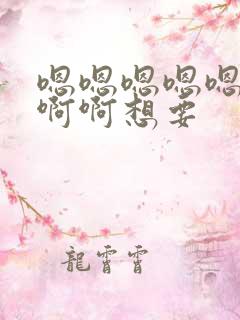 嗯嗯嗯嗯嗯
啊啊想要
龍霄霄